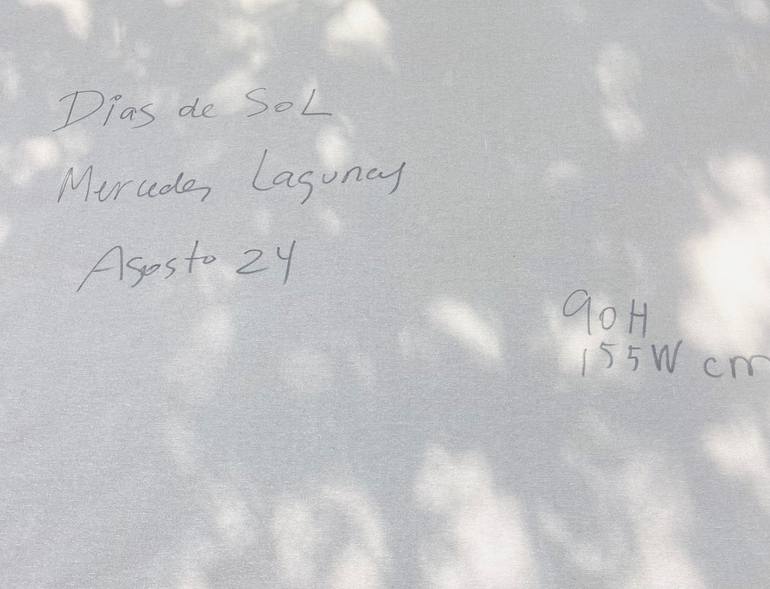 Dias de SoL
Mercedes Lagunas
Agosto 24
90H
155W cm